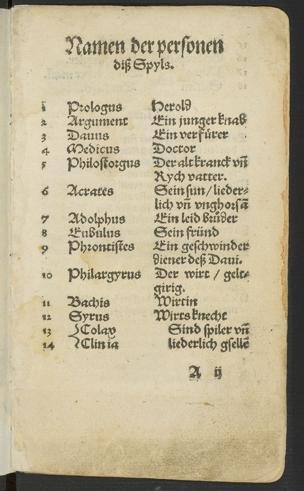 Namen der personen
diß Spyls.
1 Prologus Herold
2 Argument Ein junger knab
3 Dauus Ein verfürer
4 Medicus Doctor
5 Philostorgus Der alt kranck vñ
Rych vatter.
6 Acrates Sein sun / lieder-
lich vñ vnghorsã
7 Adolphus Ein leid brůder
8 Eubulus Sein fründ
9 Phrontistes Ein geschwinder
diener deß Daui.
10 Philargyrus Der wirt / gelt-
girig.
11 Bachis Wirtin
12 Syrus Wirts knecht
13 Colax Sind spiler vñ
14 Clinia liederlich gsellẽ
A ij